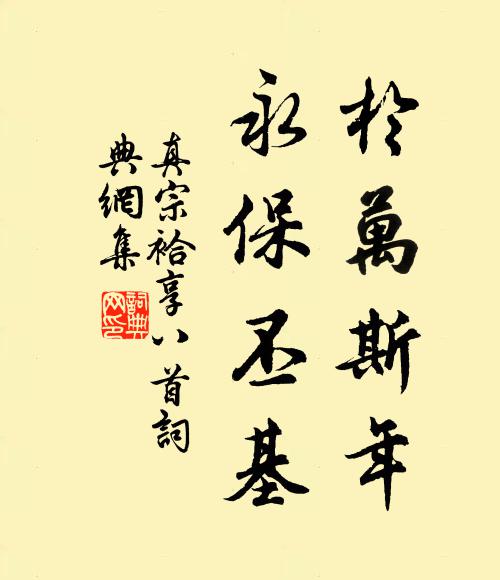 於萬斯年
永保丕基
真宗祫享八首詞
典網集
詞典
网印